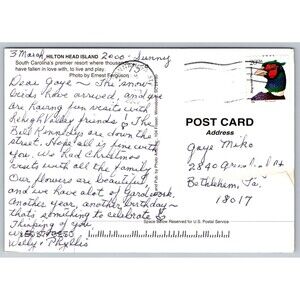 3 March, 2000 - Sunny
HILTON HEAD ISLAND
South Carolina's premier resort where thousands
have fallen in love with, to live and play.
Photo by Ernest Ferguson
Dear Gaye - The "snow
birds have arrived, and we
are having fun visits with
Lehigh Valley friends. The
Bill Kennedys are down the
street. Hope all is fine with
you, we had Christmas
visits with all the family
Our flowers are beautiful
and we have a lot of yard work.
Another year, another birthday -
that's something to celebrate
Thinking of you
Wally + Phyllis
POST CARD
Address
Gaye Miko
2840
Bethlehem, Pa.
18017
Space Below Reserved for U.S. Postal Service